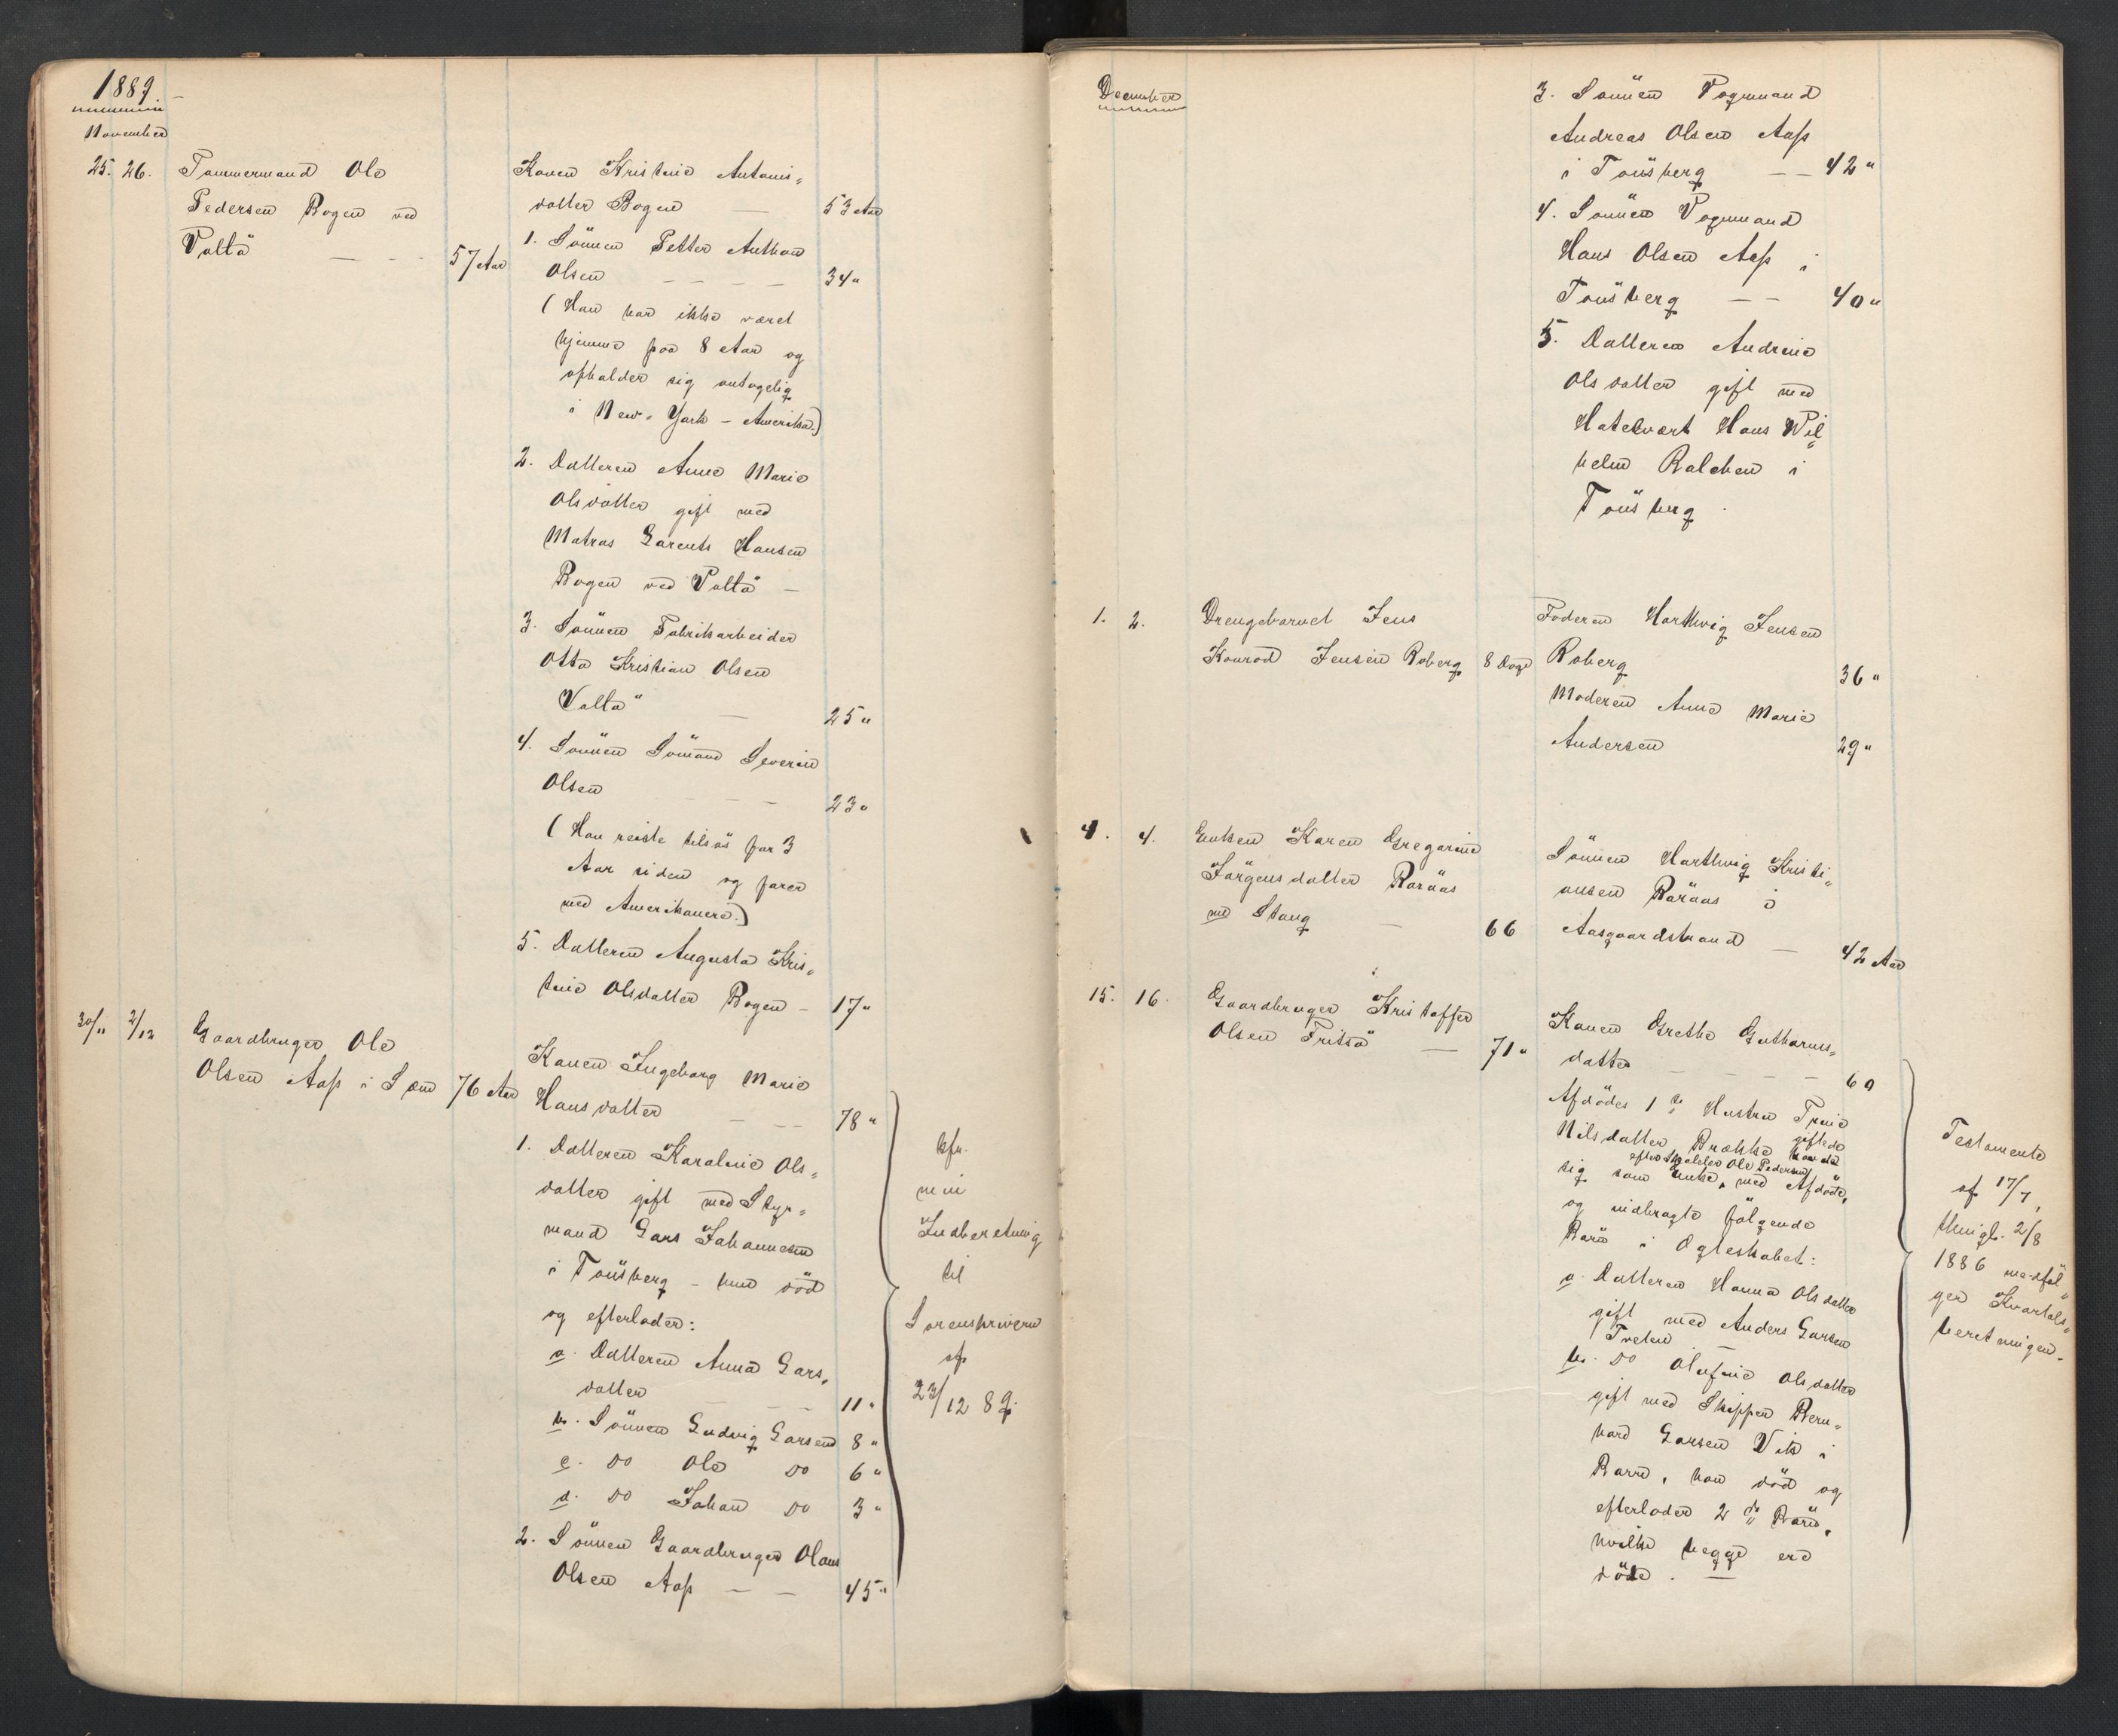 1889
November
25. 26. Tømmermand Ole
Pedersen Bogen ved
Vallö — — 57 Aar
Konen Kristine Antonis„
datter Bogen — 53 Aar
1. Sönnen Petter Anthon
Olsen — — — — 34 "
(Han har ikke været
hjemme paa 8 Aar og
opholder sig antagelig
i New-York - Amerika.)
2. Datteren Anne Marie
Olsdatter gift med
Matros Larents Hansen
Bogen ved Vallö —
3. Sönnen Fabrikarbeider
Otto Kristian Olsen
Vallö — 25 "
4. Sönnen Sömand Severin
Olsen — — — 23 "
(Han reiste tilsös for 3
Aar siden og farer
med Amerikanere.)
5. Datteren Augusta Kris„
tine Olsdatter Bogen — 17 "
30/11 2/12 Gaardbruger Ole
Olsen Aas i Sem 76 Aar
Konen Ingeborg Marie
Hansdatter — — — 78 "
1. Datteren Karoline Ols„
datter gift med Styr„
mand Lars Johannesen
i Tönsberg - hun död
og efterlader:
a. Datteren Anna Lars„
datter — — — 11 "
b. Sönnen Ludvig Larsen 8 "
c. Do Ole Do 6 "
d. Do Johan Do 3 "
2. Sönnen Gaardbruger Olaus
Olsen Aas — — 45 "
kfr.
min
Indberetning
til
Sorenskriveren
af
23/12 89.
December
3. Sönnen Vognmand
Andreas Olsen Aas
i Tönsberg — — 42 "
4. Sönnen Vognmand
Hans Olsen Aas i
Tönsberg — — 40 "
5. Datteren Andrine
Olsdatter gift med
Hotelvært Hans Wil„
helm Balchen i
Tönsberg.
1. 2. Drengebarnet Jens
Konrad Jensen Roberg 8 Dage
Faderen Harthvig Jensen
Roberg 36 "
Moderen Anne Marie
Andersen 29 "
4. 4. Enken Karen Gregorine
Jörgensdatter Röraas
ved Stang — 66
Sönnen Harthvig Kristi„
ansen Röraas i
Aasgaardstrand — 42 Aar
15. 16. Gaardbruger Kristoffer
Olsen Fritsö — 71 "
Konen Grethe Guthorms„
datter — — — — 60
Afdödes 1ste Hustru Trine
Nilsdatter Brække giftede
efter Ole Pedersen
sig som Enke, med Afdöde,
og indbragte fölgende
Börn i Ægteskabet:
a. Datteren Hanna Olsdatter
gift med Anders Larsen
Trelen
b. Do Olufine Olsdatter
gift med Skipper Bern„
hard Larsen Vik i
Borre, han död og
efterlader 2de Börn,
hvilke begge ere
döde. —
Testamente
af 17/7,
thingl. 2/8
1886 medföl„
ger Kvartals„
beretningen.